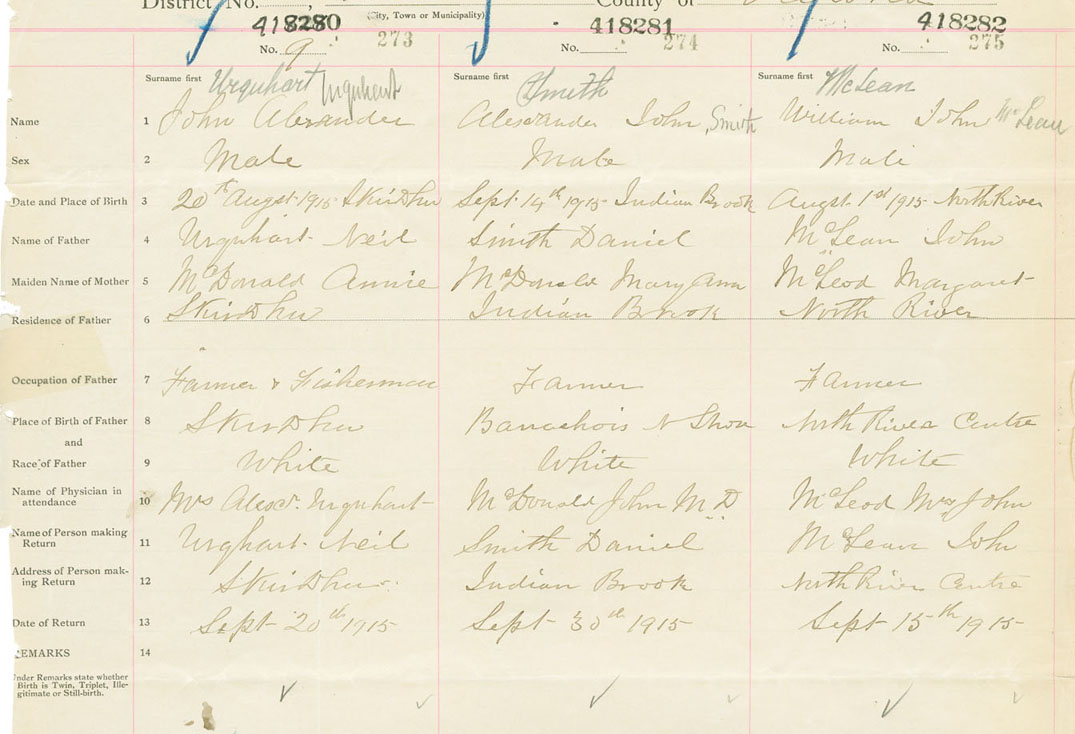 District No. , County of
418280 (City, Town or Municipality) 418281 418282
No. 9 273 No. 274 No. 275
Surname first Urquhart Urquhart Surname first Smith Surname first McLean
Name 1 John Alexander Alexander John, Smith William John McLean
Sex 2 Male Male Male
Date and Place of Birth 3 20th Augst 1915 SkirDhu Sept 14th 1915 Indian Brook Augst 1st 1915 North River
Name of Father 4 Urquhart Neil Smith Daniel McLean John
Maiden Name of Mother 5 McDonald Annie McDonald Mary Ann McLeod Margaret
Residence of Father 6 SkirDhu Indian Brook North River
Occupation of Father 7 Farmer & Fisherman Farmer Farmer
Place of Birth of Father 8 SkirDhu Barrachois N Shore North River Centre
and
Race of Father 9 White White White
Name of Physician in
attendance 10 Mrs Alexr. Urquhart McDonald John M.D McLeod Mrs John
Name of Person making
Return 11 Urghart Neil Smith Daniel McLean John
Address of Person mak-
ing Return 12 SkirDhu Indian Brook North River Centre
Date of Return 13 Sept 20th 1915 Sept 30th 1915 Sept 15th 1915
REMARKS 14
Under Remarks state whether
Birth is Twin, Triplet, Ille-
gitimate or Still-birth.